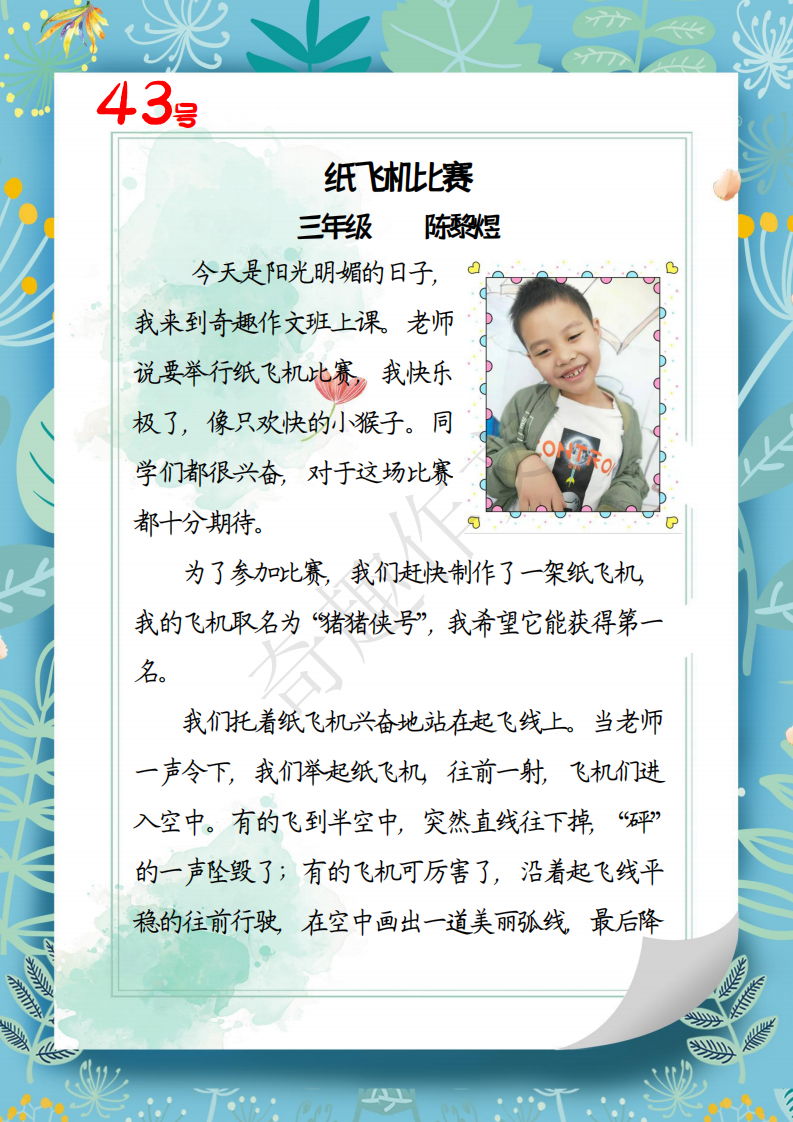 43号
纸飞机比赛
三年级 陈黎煜
今天是阳光明媚的日子，
我来到奇趣作文班上课。老师
说要举行纸飞机比赛，我快乐
极了，像只欢快的小猴子。同
学们都很兴奋，对于这场比赛
都十分期待。
为了参加比赛，我们赶快制作了一架纸飞机，
我的飞机取名为“猪猪侠号”，我希望它能获得第一
名。
我们托着纸飞机兴奋地站在起飞线上。当老师
一声令下，我们举起纸飞机，往前一射，飞机们进
入空中。有的飞到半空中，突然直线往下掉，“砰”
的一声坠毁了；有的飞机可厉害了，沿着起飞线平
稳的往前行驶，在空中画出一道美丽弧线，最后降
奇趣作
CONTROL